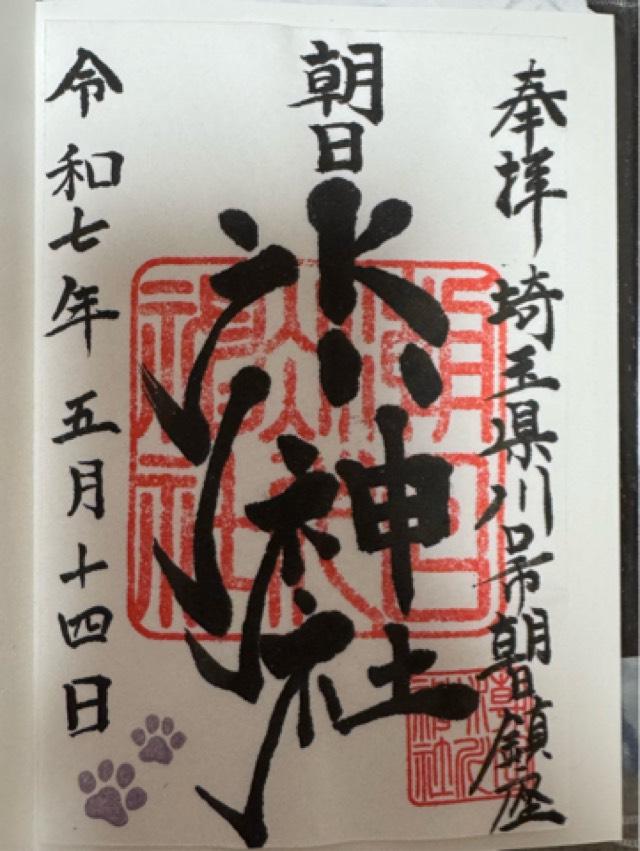 奉拝 埼玉県川口市朝日鎮座
朝日氷川神社
令和七年五月十四日
朝日
氷川
神社